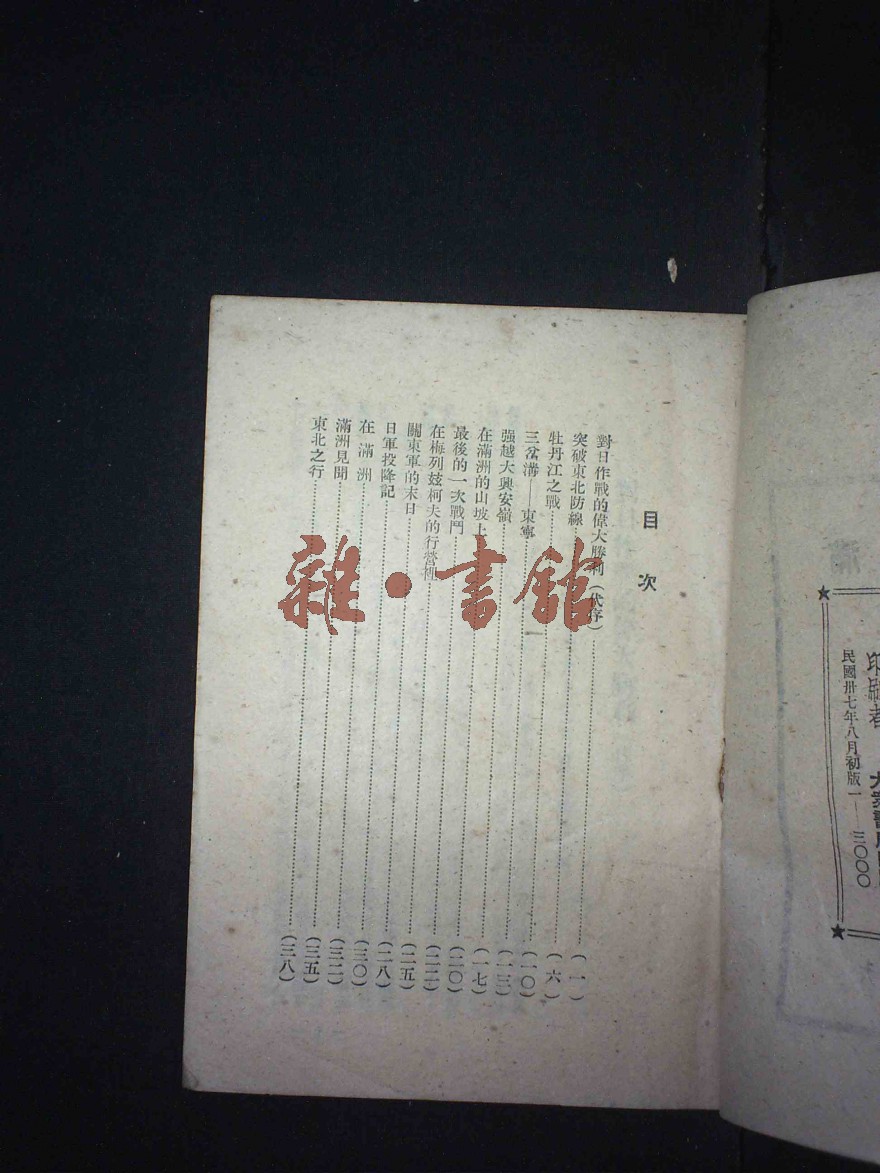 印刷者 大衆書局印
民國卅七年八月初版一——三〇〇〇
目次
對日作戰的偉大勝利（代序）……（一）
突破東北防線……（六）
牡丹江之戰……（一〇）
三岔溝——東寧……（一三）
强越大興安嶺……（一七）
在滿洲的山坡上……（二〇）
最後的一次戰鬥……（二二）
在梅列茲柯夫的行營裡……（二五）
關東軍的末日……（二八）
日軍投降記……（三〇）
在滿洲……（三二）
滿洲見聞……（三五）
東北之行……（三八）
雜·書館